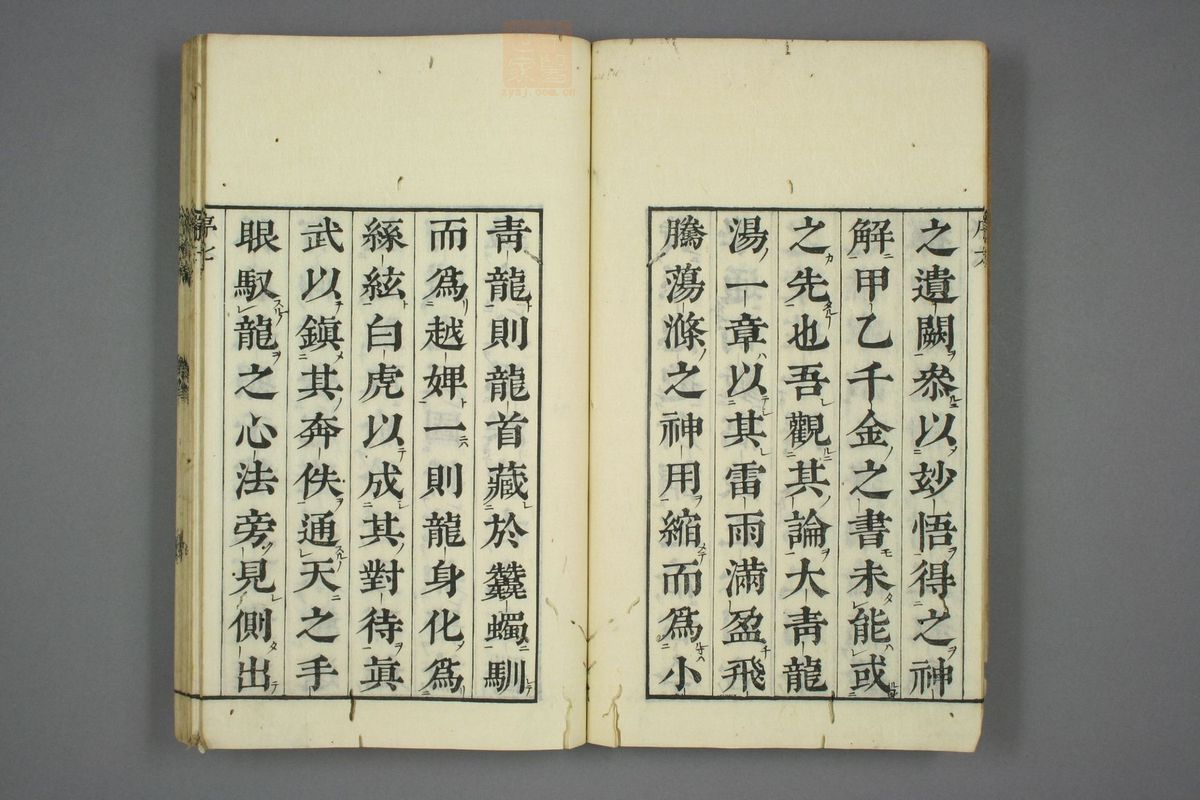 之遺闕叅以玅悟得之神
解甲乙千金之書未能或
之先也吾觀其論大靑龍
湯一章以其雷雨滿盈飛
騰蕩滌之神用縮而爲小
靑龍則龍首藏於蠶蠋馴
而爲越婢一則龍身化爲
絲絃白虎以成其對待眞
武以鎭其奔佚通天之手
眼馭龍之心法旁見側出
序七
zysj.com.cn